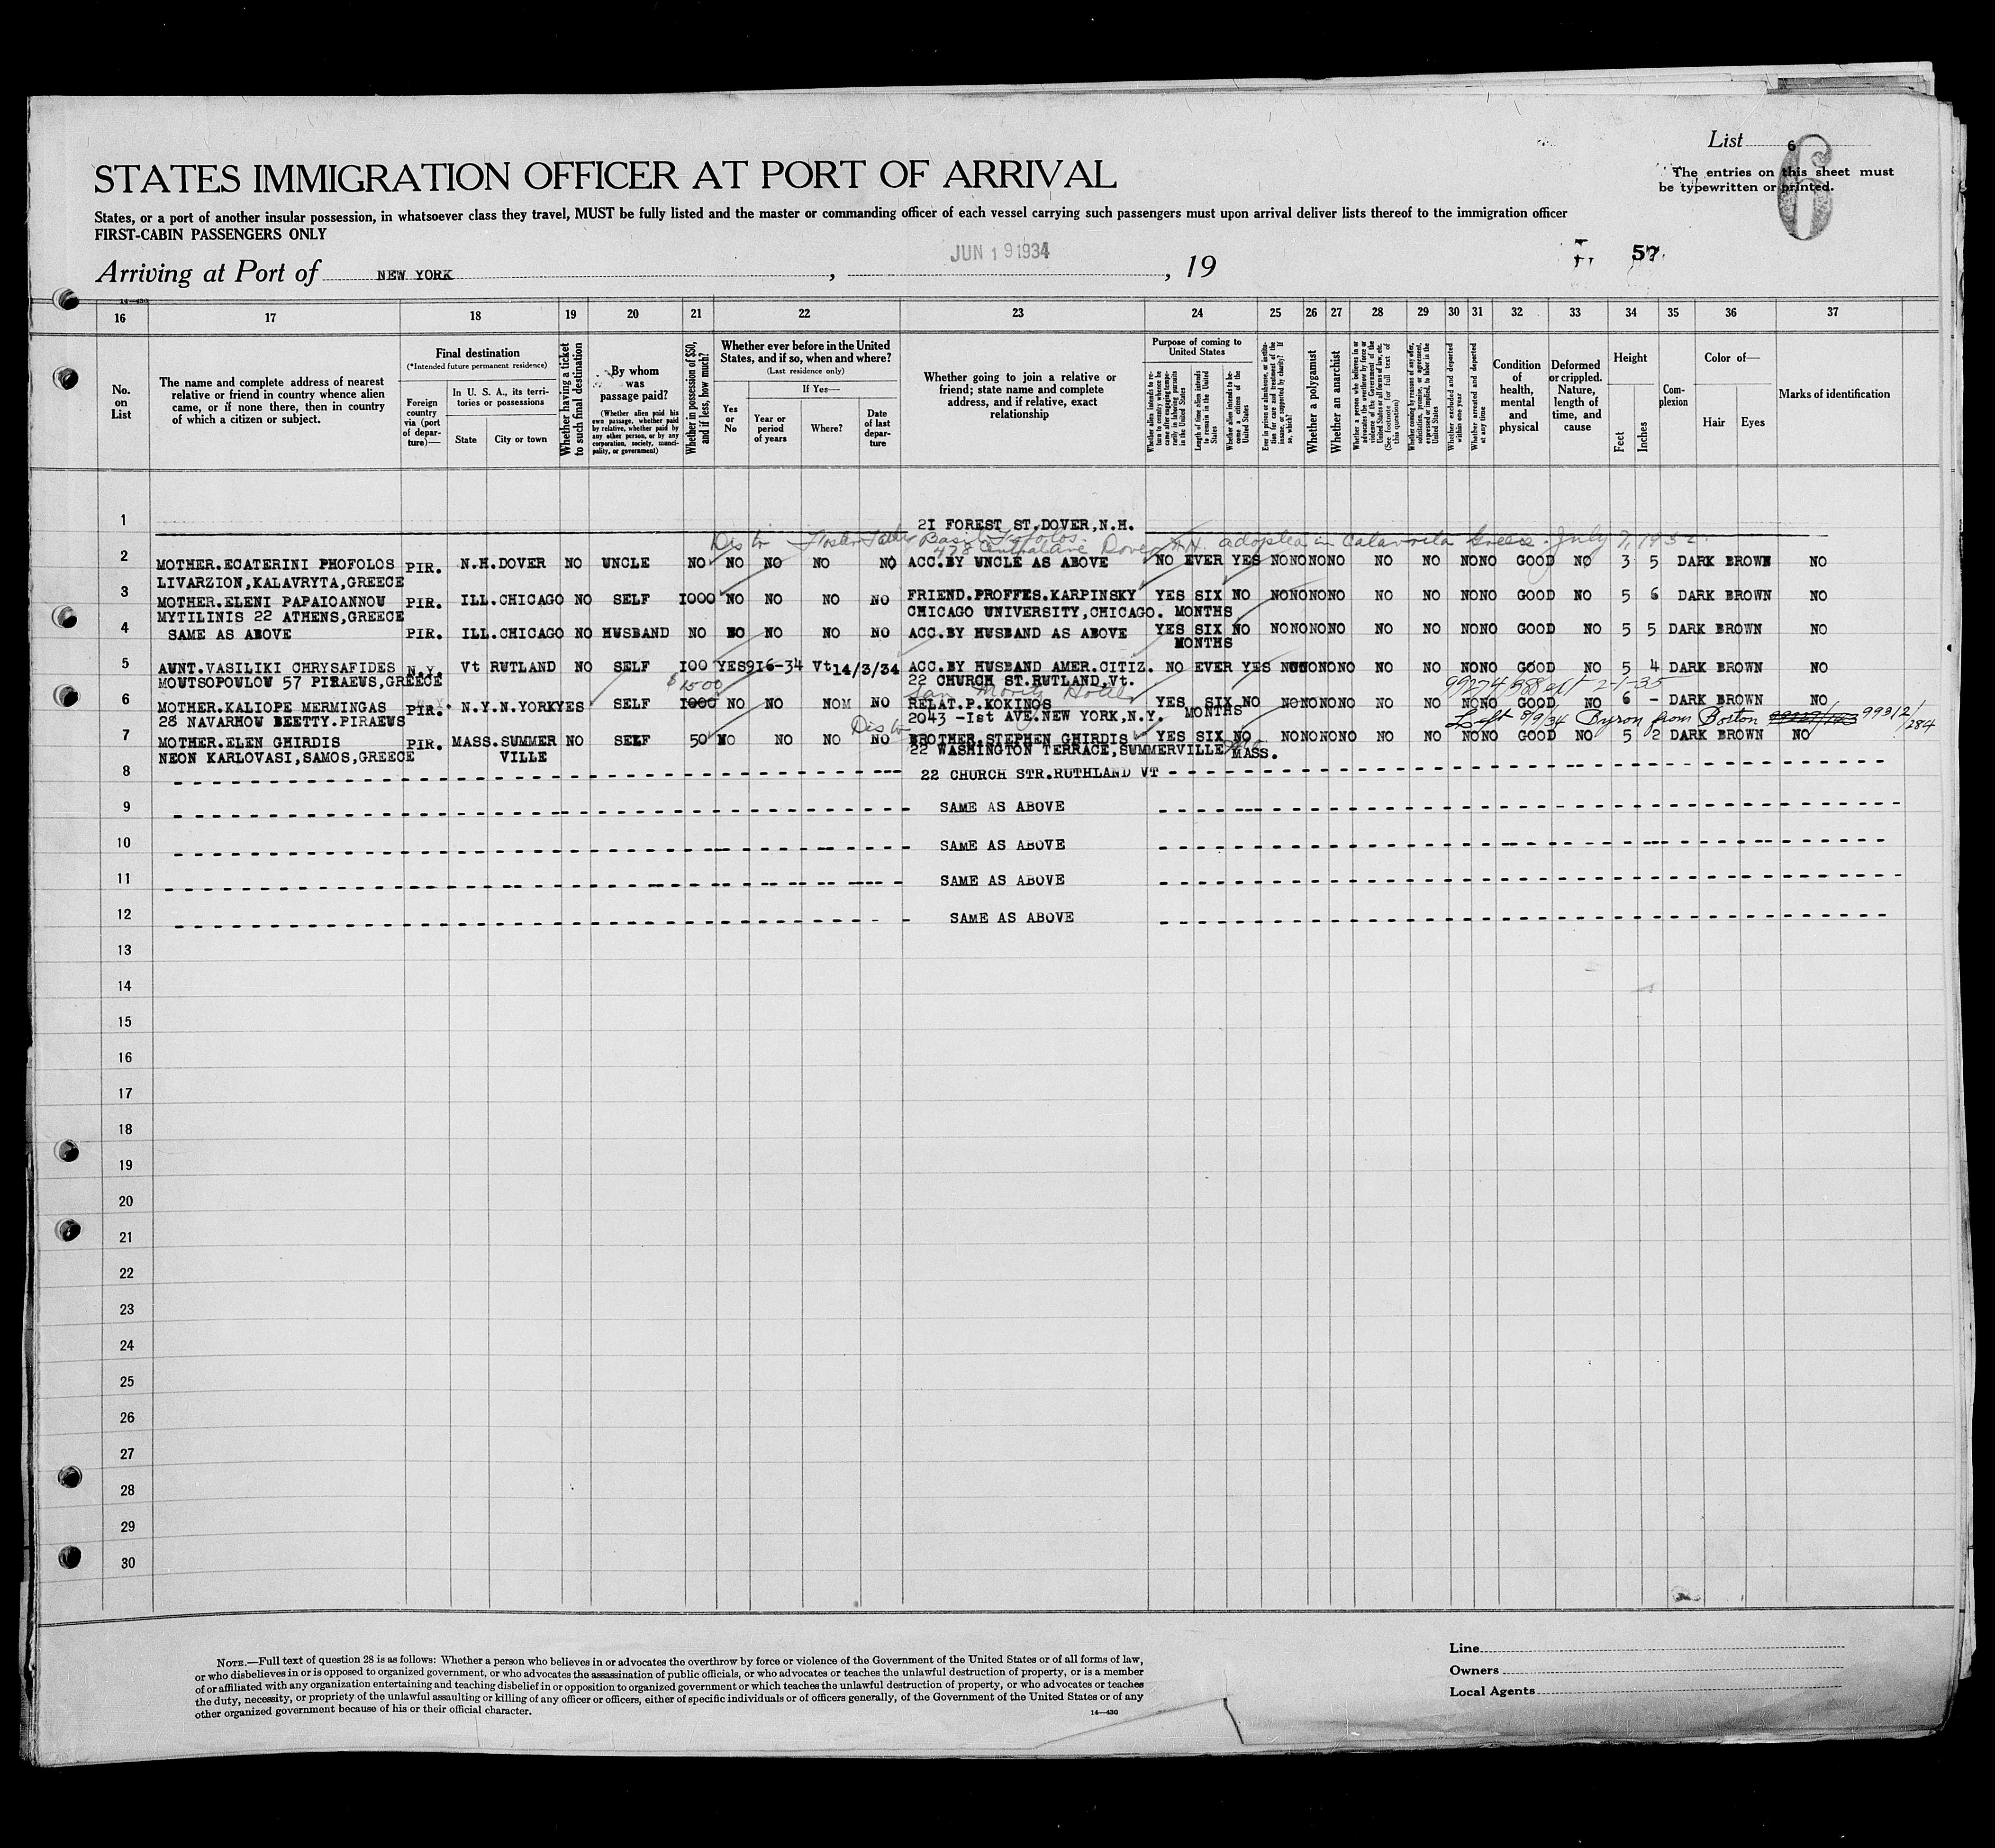 List 6
6
The entries on this sheet must
be typewritten or printed.
STATES IMMIGRATION OFFICER AT PORT OF ARRIVAL
States, or a port of another insular possession, in whatsoever class they travel, MUST be fully listed and the master or commanding officer of each vessel carrying such passengers must upon arrival deliver lists thereof to the immigration officer
FIRST-CABIN PASSENGERS ONLY
Arriving at Port of NEW YORK , JUN 19 1934 , 19
57
14-430
16 17 18 19 20 21 22 23 24 25 26 27 28 29 30 31 32 33 34 35 36 37
No. on List
The name and complete address of nearest
relative or friend in country whence alien
came, or if none there, then in country
of which a citizen or subject.
Final destination
(*Intended future permanent residence)
Foreign country via (port of departure)—
In U. S. A., its territories or possessions
State
City or town
Whether having a ticket to such final destination
By whom was passage paid?
(Whether alien paid his own passage, whether paid by relative, whether paid by any other person, or by any corporation, society, municipality, or government)
Whether in possession of $50, and if less, how much?
Whether ever before in the United States, and if so, when and where?
(Last residence only)
If Yes—
Yes or No
Year or period of years
Where?
Date of last departure
Whether going to join a relative or
friend; state name and complete
address, and if relative, exact
relationship
Purpose of coming to United States
Whether alien intends to return to country whence he came after engaging temporarily in laboring pursuits in the United States
Length of time alien intends to remain in the United States
Whether alien intends to become a citizen of the United States
Ever in prison or almshouse, or institution for care and treatment of the insane, or supported by charity? If so, which?
Whether a polygamist
Whether an anarchist
Whether a person who believes in or advocates the overthrow by force or violence of the Government of the United States or all forms of law, etc. (See footnote for full text of this question)
Whether coming by reasons of any offer, solicitation, promise, or agreement, expressed or implied, to labor in the United States
Whether excluded and deported within one year
Whether arrested and deported at any time
Condition of health, mental and physical
Deformed or crippled. Nature, length of time, and cause
Height
Feet
Inches
Complexion
Color of—
Hair
Eyes
Marks of identification
1 21 FOREST ST,DOVER,N.H.
Foster Father Basil Fofolos
478 Central Ave Dover N.H. adopted in Calavrita Greece. July 7, 1932
2 MOTHER.ECATERINI PHOFOLOS PIR. N.H.DOVER NO UNCLE NO NO NO NO NO ACC.BY UNCLE AS ABOVE NO EVER YES NO NO NO NO NO NO NO NO GOOD NO 3 5 DARK BROWN NO
LIVARZION,KALAVRYTA,GREECE
3 MOTHER.ELENI PAPAIOANNOU PIR. ILL.CHICAGO NO SELF 1000 NO NO NO NO FRIEND.PROFFES.KARPINSKY YES SIX NO NO NO NO NO NO NO NO NO GOOD NO 5 6 DARK BROWN NO
MYTILINIS 22 ATHENS,GREECE CHICAGO UNIVERSITY,CHICAGO. MONTHS
4 SAME AS ABOVE PIR. ILL.CHICAGO NO HUSBAND NO NO NO NO NO ACC.BY HUSBAND AS ABOVE YES SIX NO NO NO NO NO NO NO NO NO GOOD NO 5 5 DARK BROWN NO
MONTHS
5 AUNT.VASILIKI CHRYSAFIDES N.Y. Vt RUTLAND NO SELF 100 YES 916-34 Vt 14/3/34 ACC.BY HUSBAND AMER.CITIZ. NO EVER YES NO NO NO NO NO NO NO NO GOOD NO 5 4 DARK BROWN NO
MOUTSOPOULOU 57 PIRAEUS,GREECE 22 CHURCH ST.RUTLAND,Vt.
$1500 San Moritz Hotel 2-1-35
6 MOTHER.KALIOPE MERMINGAS PIR. N.Y.N.YORK YES SELF 1000 NO NO NOM NO RELAT.P.KOKINOS YES SIX NO NO NO NO NO NO NO NO NO GOOD NO 6 - DARK BROWN NO
28 NAVARHOU BEETTY.PIRAEUS 2043 -Ist AVE.NEW YORK,N.Y. MONTHS
Left 8/9/34 Byron from Boston 99312/284
7 MOTHER.ELEN GHIRDIS PIR. MASS.SUMMER NO SELF 50 NO NO NO NO BROTHER.STEPHEN GHIRDIS YES SIX NO NO NO NO NO NO NO NO NO GOOD NO 5 2 DARK BROWN NO
NEON KARLOVASI,SAMOS,GREECE VILLE 22 WASHINGTON TERRACE,SUMMERVILLE MASS.
8 22 CHURCH STR.RUTHLAND VT
9 SAME AS ABOVE
10 SAME AS ABOVE
11 SAME AS ABOVE
12 SAME AS ABOVE
13
14
15
16
17
18
19
20
21
22
23
24
25
26
27
28
29
30
NOTE.—Full text of question 28 is as follows: Whether a person who believes in or advocates the overthrow by force or violence of the Government of the United States or of all forms of law,
or who disbelieves in or is opposed to organized government, or who advocates the assassination of public officials, or who advocates or teaches the unlawful destruction of property, or is a member
of or affiliated with any organization entertaining and teaching disbelief in or opposition to organized government or which teaches the unlawful destruction of property, or who advocates or teaches
the duty, necessity, or propriety of the unlawful assaulting or killing of any officer or officers, either of specific individuals or of officers generally, of the Government of the United States or of any
other organized government because of his or their official character.
14—430
Line
Owners
Local Agents